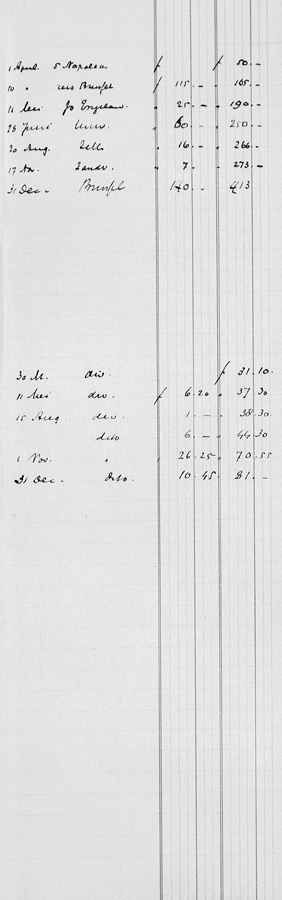 1 April 5 Napoleon f f 50 . –
10 " Brussel f 115 . – " 165 . –
11 Mei Jo Engeland " 25 . – " 190 . –
28 Juni " 60 . – " 250 . –
20 Aug. " 16 . – " 266 . –
17 Nov. " 7 . " 273 . –
31 Dec. Brussel 140 . – " 413
30 M. div. f 31 . 10 .
11 Mei div. f 6 . 20 " 37 30
15 Aug div. " 1 . – " 38 . 30
dito 6 . – " 44 30
1 Nov. " " 26 . 25 " 70 . 55
31 Dec. dito. " 10 . 45 " 81 . –